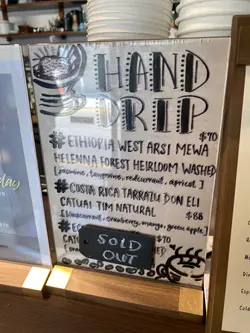 HAND
DRIP
# ETHIOPIA WEST ARSI MEWA $70
HELENNA FOREST HEIRLOOM WASHED
[jasmine, tangerine, redcurrant, apricot]
# COSTA RICA TARRAZU DON ELI
CATUAI TIM NATURAL $88
[blackcurrant, cranberry, mango, green apple]
CATU $70
SOLD
OUT